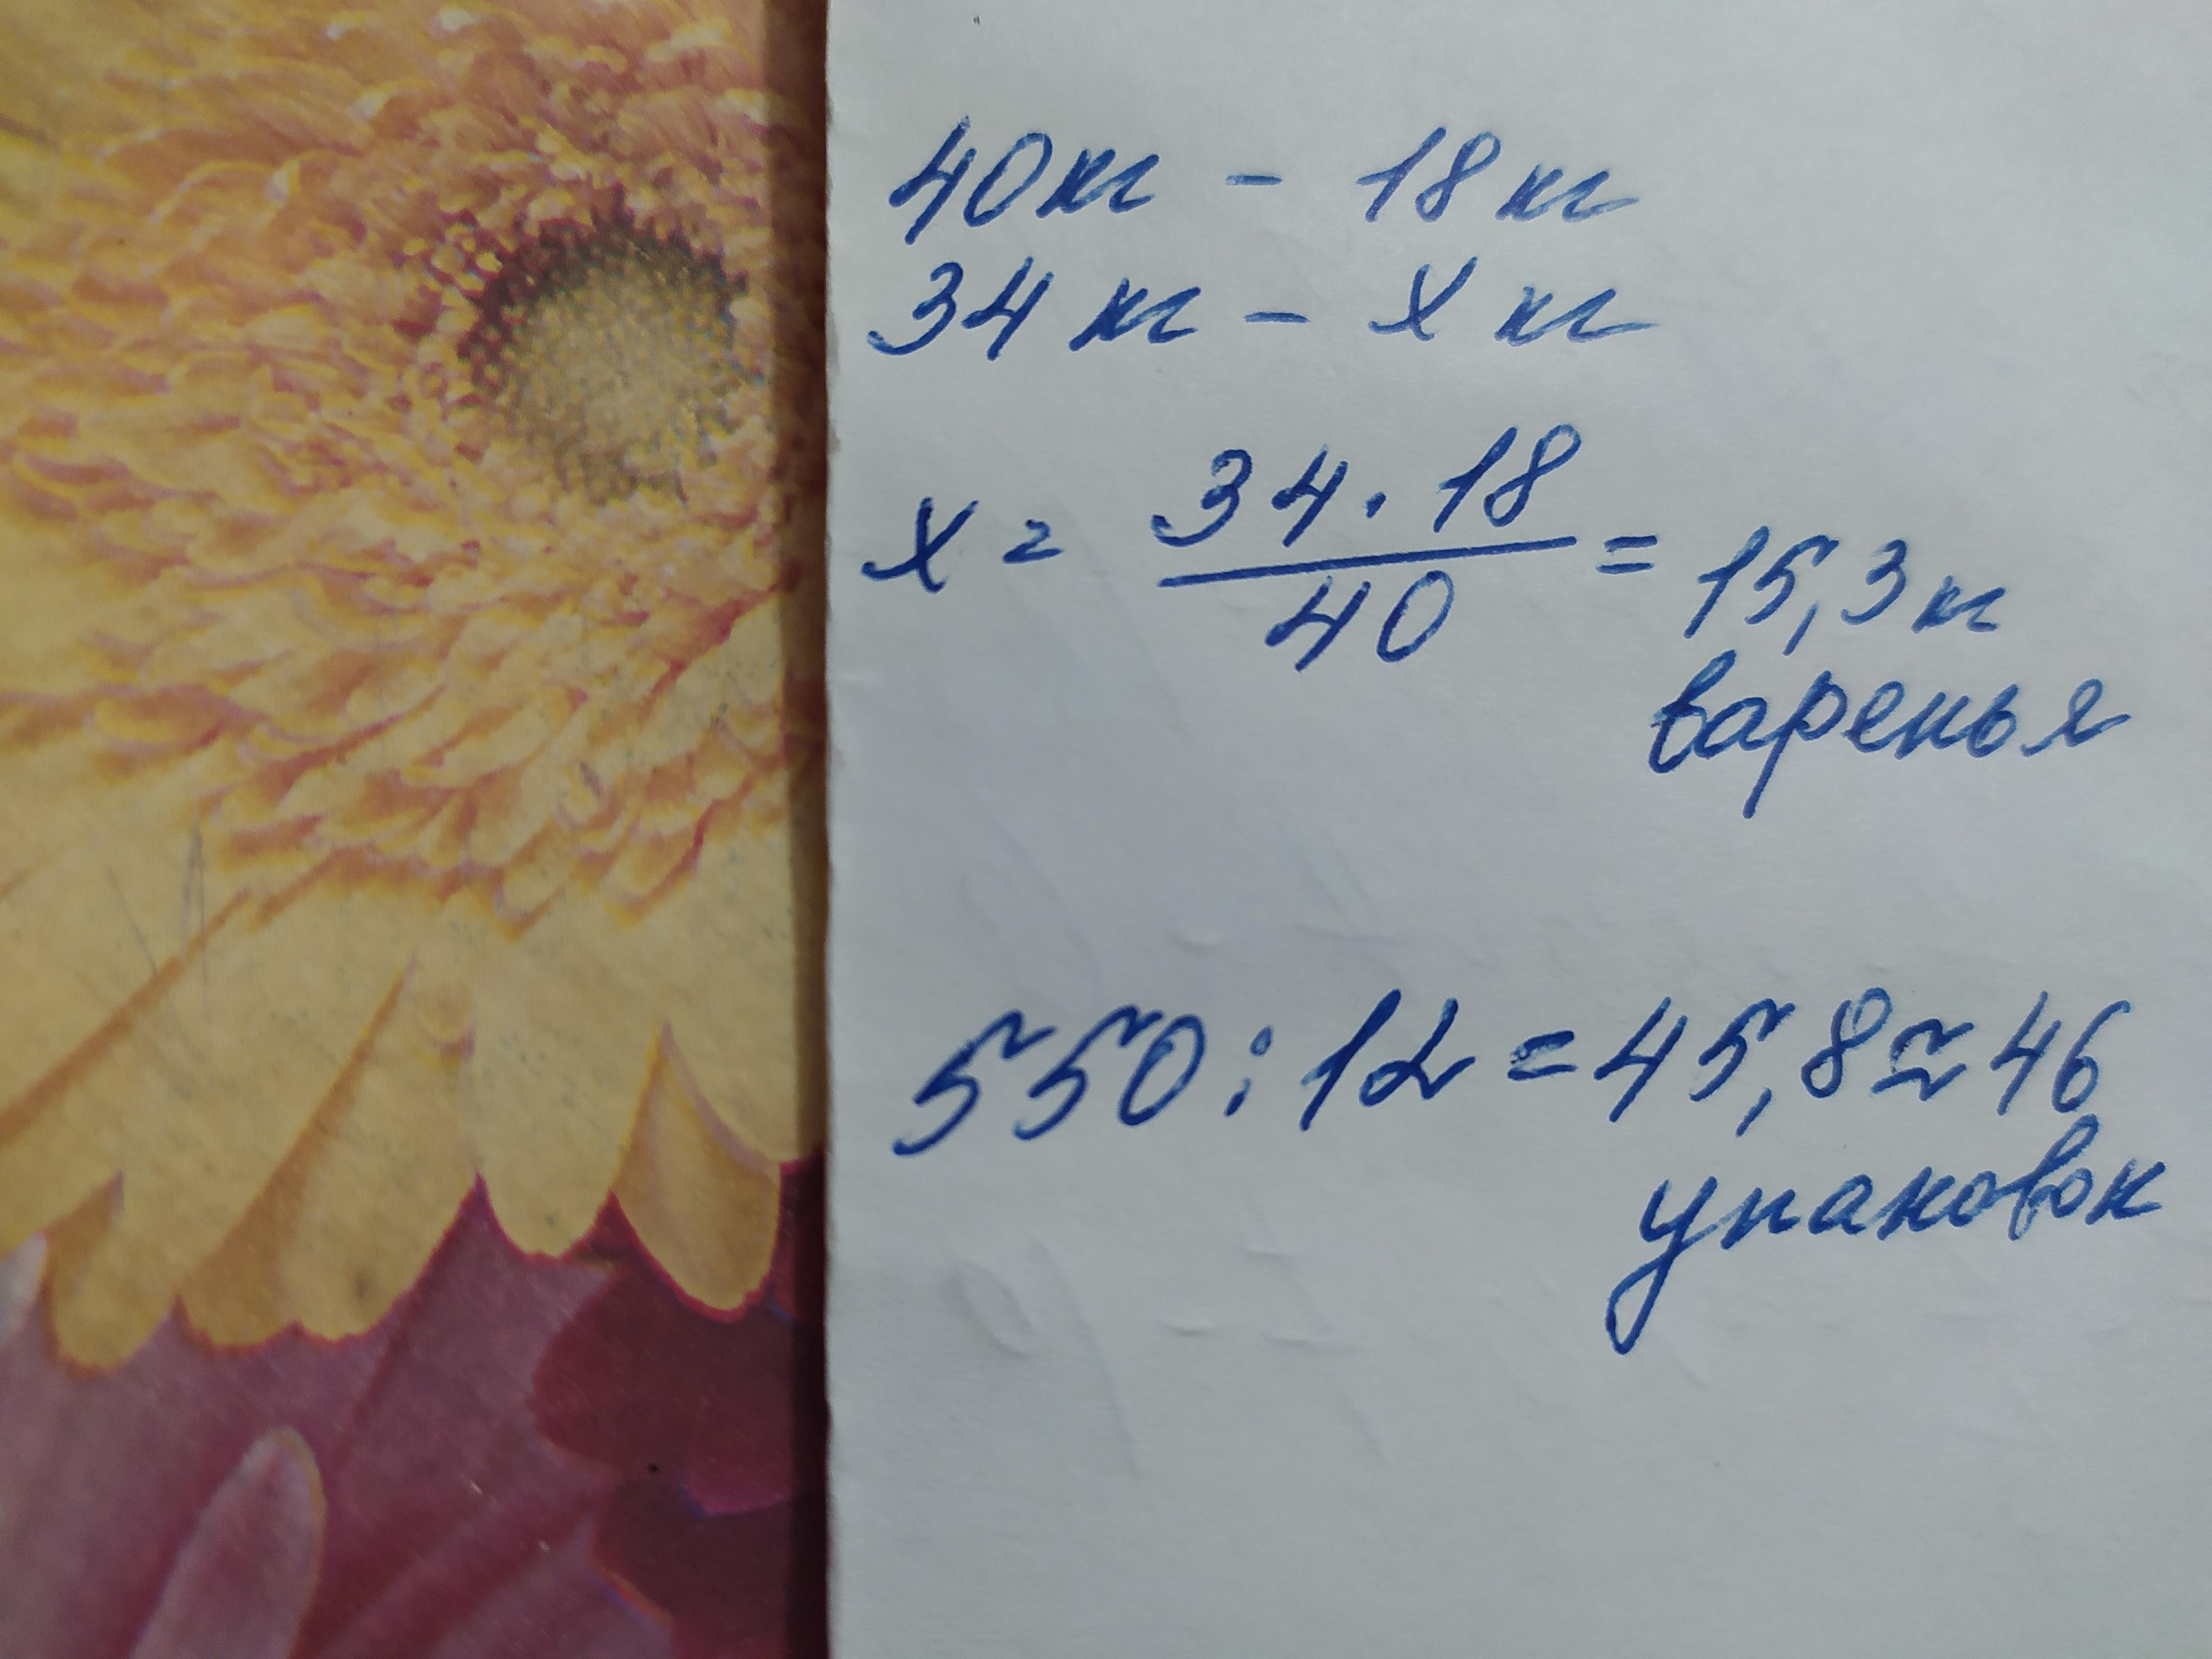 40кг - 18 кг
34 кг - х кг
х = 34 · 18 / 40 = 15,3 кг
варенья
550 : 12 = 45,8 ≈ 46
упаковок